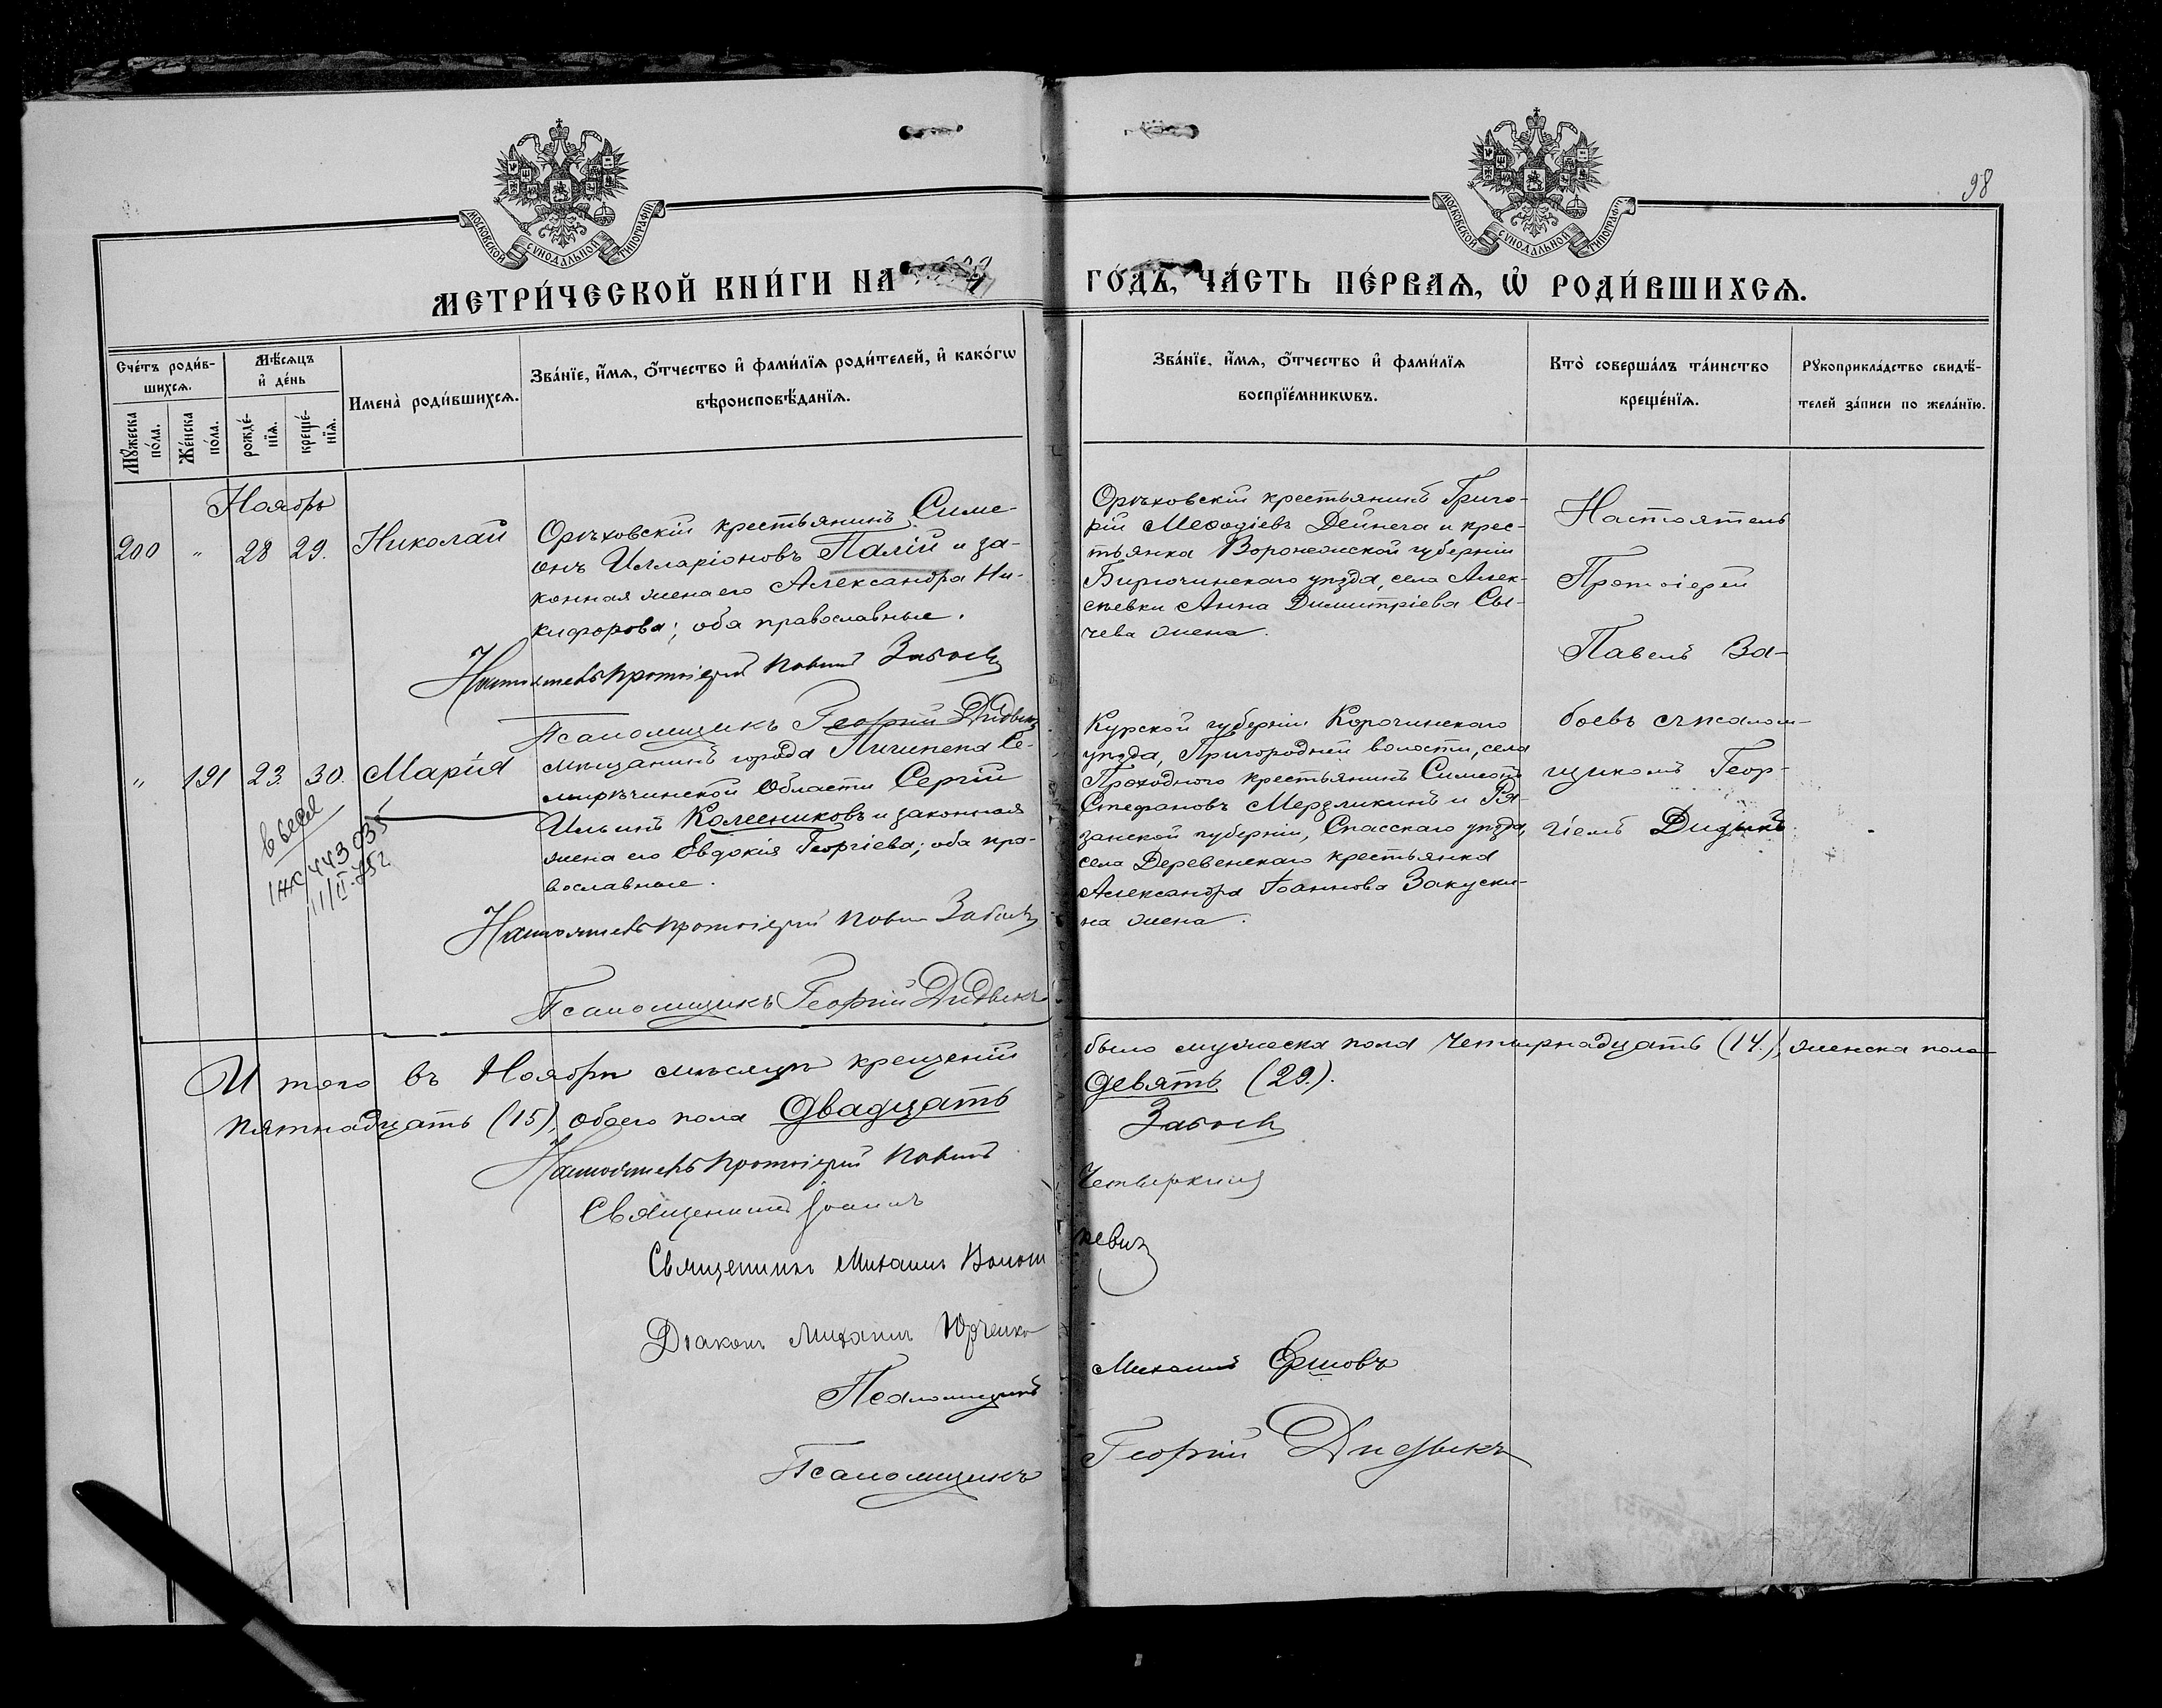 98
МОСКОВСКОЙ СѴНОДАЛЬНОЙ ТИПОГРАФІИ
МОСКОВСКОЙ СѴНОДАЛЬНОЙ ТИПОГРАФІИ
МЕТРИ́ЧЕСКОЙ КНИ́ГИ НА
ГО́ДЪ, ЧА́СТЬ ПЕ́РВАѦ, Ѡ҆ РОДИ́ВШИХСѦ.
Счетъ роди́в-
шихсѧ.
Мѣсѧцъ
и҆ де́нь
Мꙋжеска по́ла.
Же́нска по́ла.
рожде́-
нїѧ.
креще́-
нїѧ.
Имена̀ роди́вшихсѧ.
Зва́нїе, и҆́мѧ, ѻ҆́тчество и҆ фами́лїѧ роди́телей, и҆ како́гѡ
вѣроисповѣ́данїѧ.
Зва́нїе, и҆́мѧ, ѻ҆́тчество и҆ фами́лїѧ
воспрїе́мникѡвъ.
Кто̀ соверша́лъ та́инство
креще́нїѧ.
Рꙋкоприкла́дство свидѣ́-
телей за́писи по жела́нїю.
Ноябрь
200 " 28 29. Николай
Орѣховскій крестьянинъ Симе-
онъ Илларіоновъ Палій и за-
конная жена его Александра Ни-
кифорова; оба православные.
Настоятель Протоіерей Павелъ Забоевъ
Псаломщикъ Георгій Дидыкъ
Орѣховскій крестьянинъ Григо-
рій Меѳодіевъ Дейнега и крес-
тьянка Воронежской губерніи
Бирючинскаго уѣзда, села Алек-
сѣевки Анна Димитріева Сы-
чева жена.
Настоятель
Протоіерей
Павелъ За-
боевъ съ псалом-
щикомъ Геор-
гіемъ Дидыкъ.
" 191 23. 30. Марія
мѣщанинъ города Пишпека Се-
мирѣчинской Области Сергій
Ильинъ Колесниковъ и законная
жена его Евдокія Георгіева; оба пра-
вославные.
1ЖС 443035
11/II-75г
Настоятель Протоіерей Павелъ Забоевъ
Псаломщикъ Георгій Дидыкъ
Курской губерніи Корочинскаго
уѣзда, Пригородней волости, села
Проходного крестьянинъ Симеонъ
Стефановъ Мерзликинъ и Ря-
занской губерніи, Спасскаго уѣзда,
села Деревенскаго крестьянка
Александра Іоаннова Закуски-
на жена.
Итого въ Ноябрѣ мѣсяцѣ крещеній было мужеска пола четырнадцать (14.), женска пола
пятнадцать (15), обоего пола двадцать девять (29.).
Настоятель Протоіерей Павелъ Забоевъ
Священникъ Іоаннъ Четыркинъ
Священникъ Михаилъ
Діаконъ Михаилъ Юрченко
Псаломщикъ Михаилъ Ершовъ
Псаломщикъ Георгій Дидыкъ